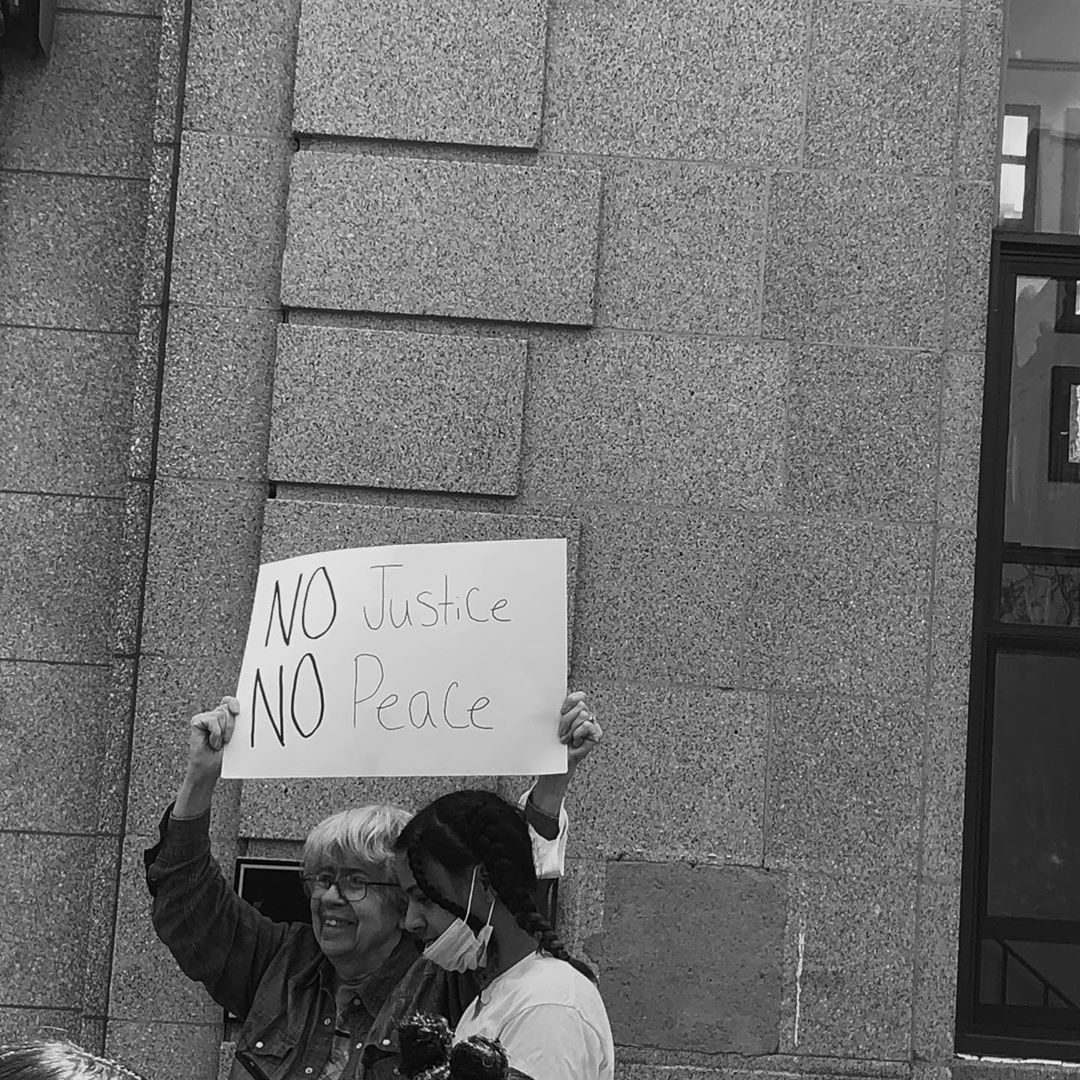 NO Justice
NO Peace